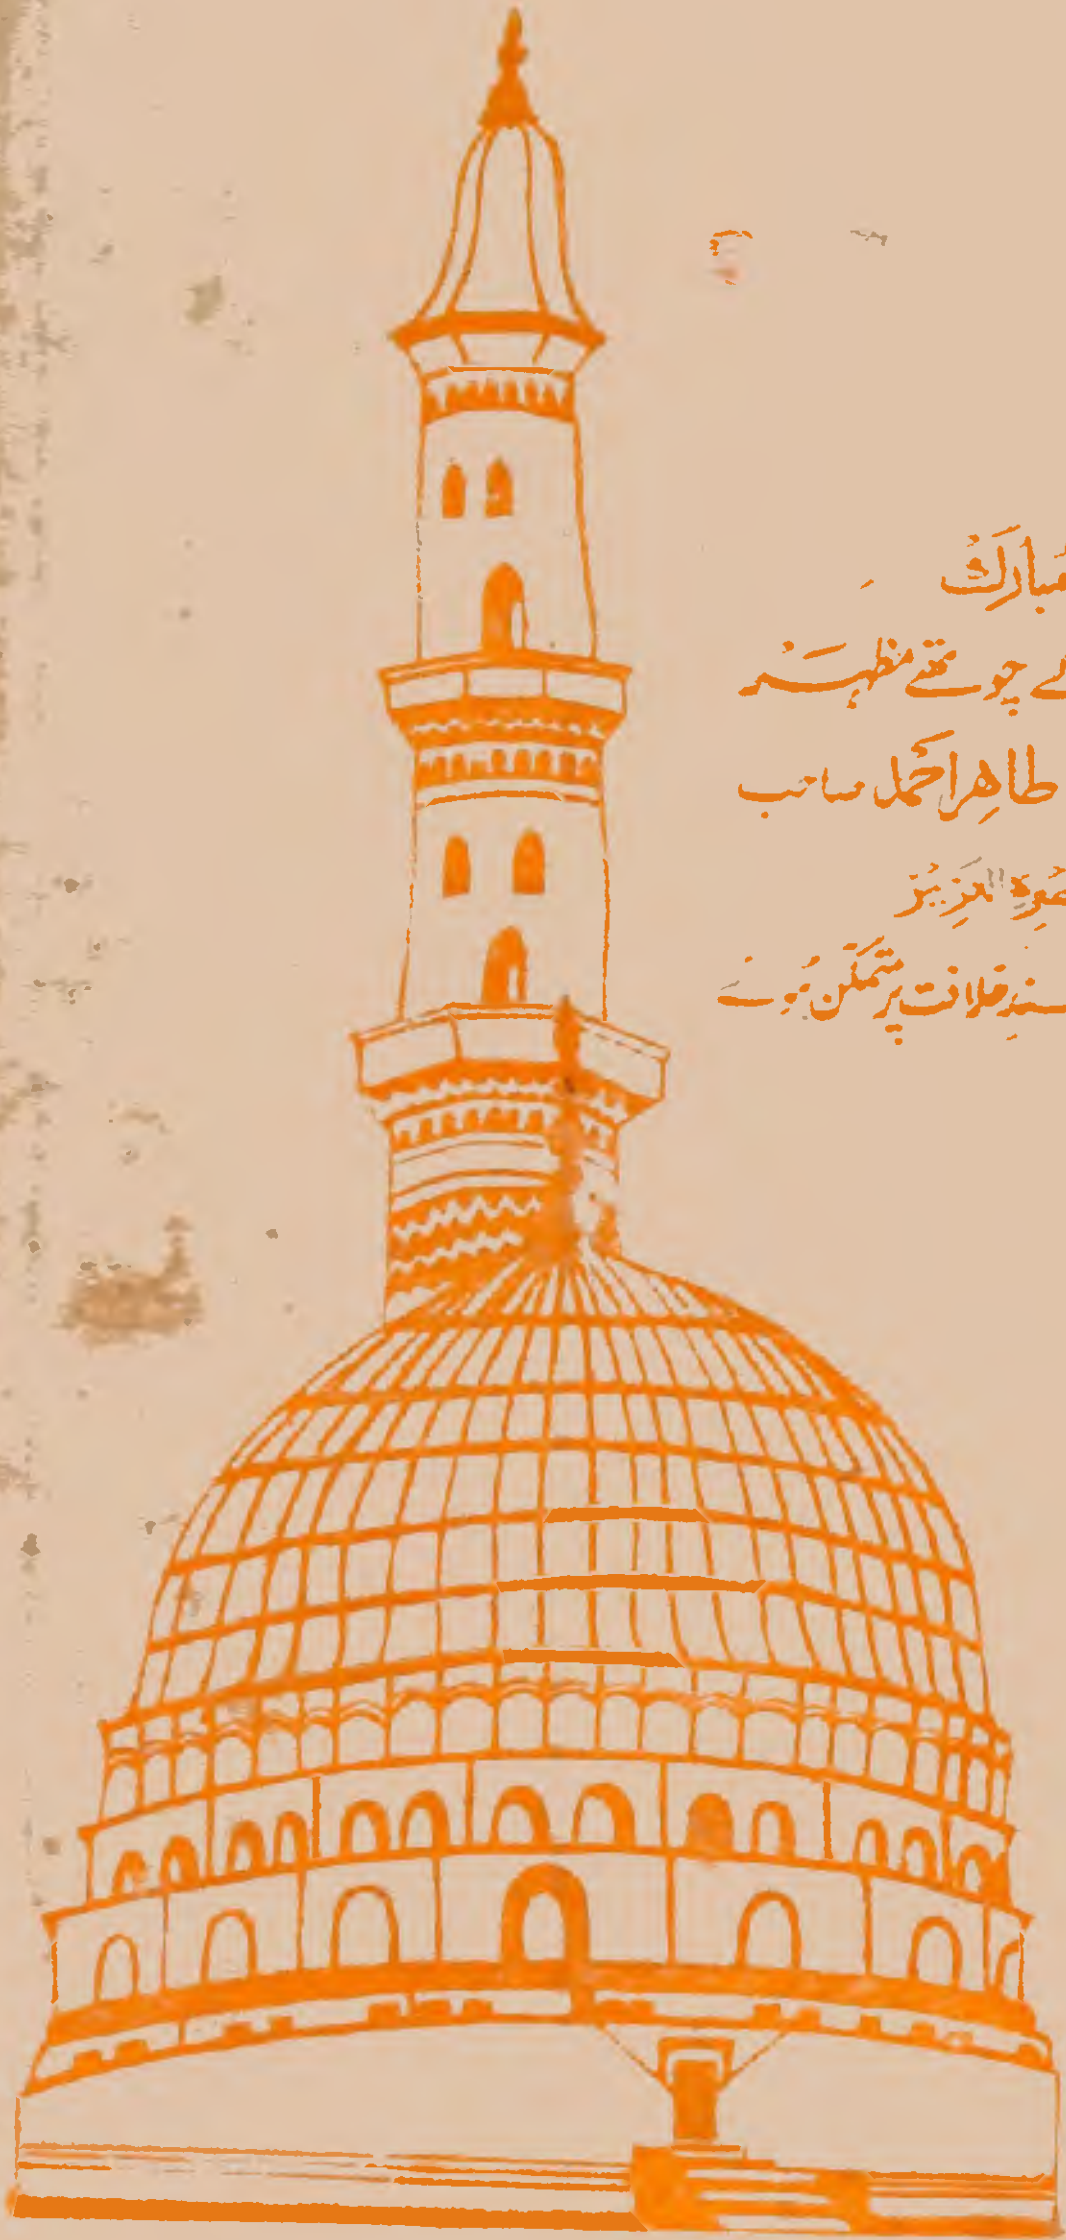 مُبارَکْ
کے چوتھے مظہَر
طاہِر احمَد صاحب
العَزِیْز
مسندِ خلافت پر متمکّن ہُوئے